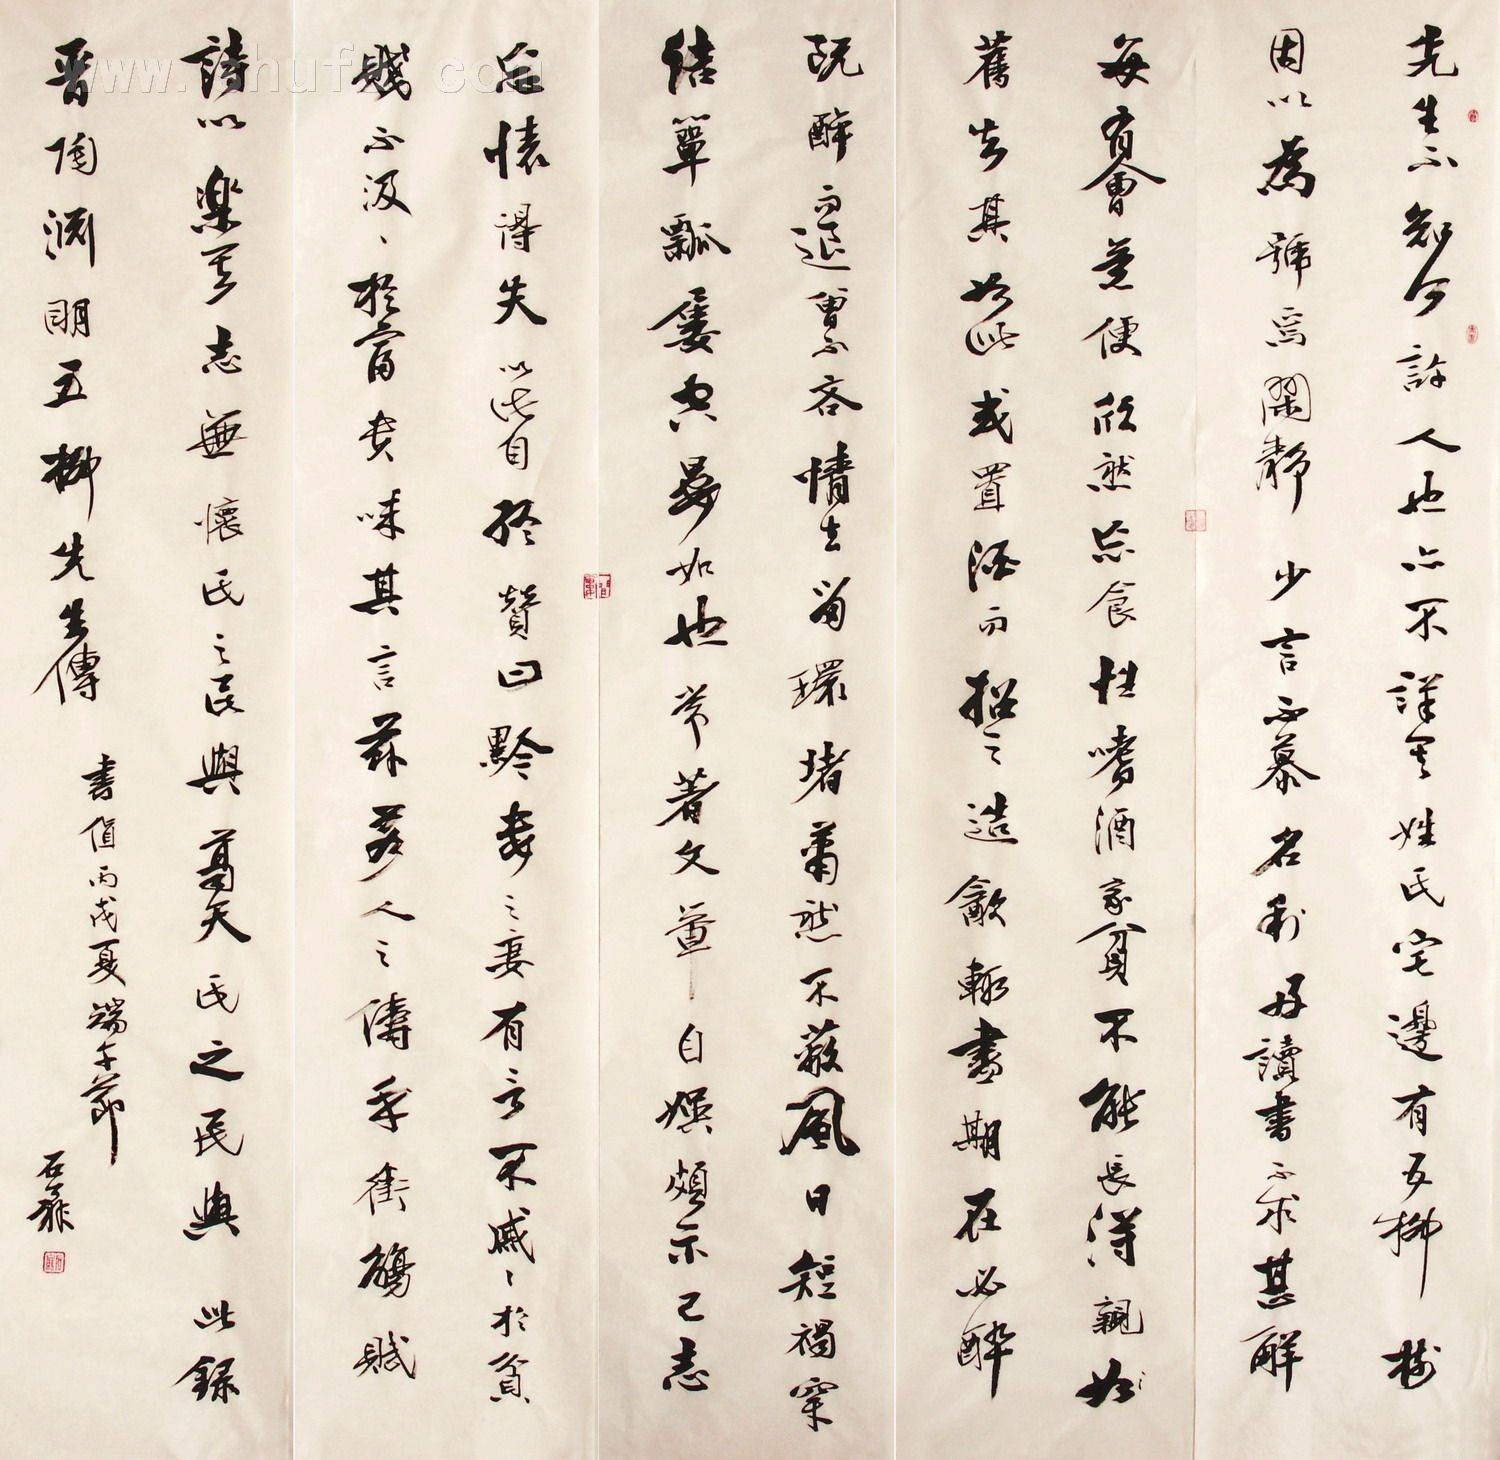 先生不知何許人也亦不詳其姓氏宅邊有五柳樹
因以為號焉閑靜少言不慕名利好讀書不求甚解
每有會意便欣然忘食性嗜酒家貧不能長得親如
舊知其如此或置酒而招之造飲輒盡期在必醉
既醉而退曾不吝情去留環堵蕭然不蔽風日短褐穿
結簞瓢屢空晏如也常著文章自娛頗示己志
忘懷得失以此自終贊曰黔婁之妻有言不戚、於貧
賤不汲、於富貴味其言茲若人之儔乎銜觴賦
詩以樂其志無懷氏之民與葛天氏之民與此錄
晉陶淵明五柳先生傳
書值丙戌夏端午節
石